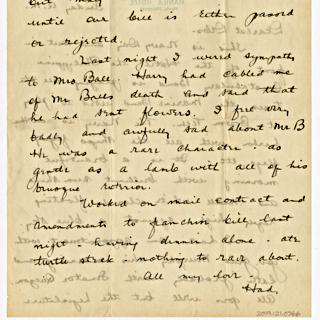 until our bill is either passed
or rejected.
Last night I wired sympathy
to Mrs. Ball. Harry had cabled me
of Mr Balls death and said that
he had sent flowers. I feel very
badly and awfully sad about Mr B
He was a rare character: as
gentle as a lamb with all of his
brusque exterior.
Worked on mail contract and
amendments to franchise bill last
night - having dinner alone. ate
turtle steak: nothing to rave about.
All my love.
Had.
2019.121.0766